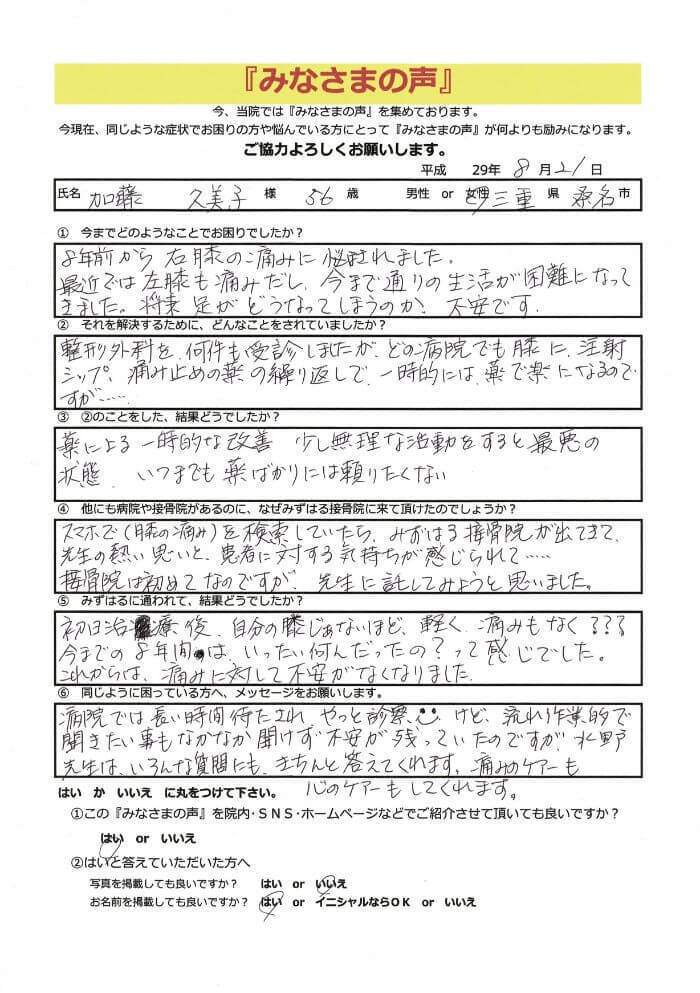 『みなさまの声』
今、当院では『みなさまの声』を集めております。
今現在、同じような症状でお困りの方や悩んでいる方にとって『みなさまの声』が何よりも励みになります。
ご協力よろしくお願いします。
平成 29年 8 月 21 日
氏名 加藤 久美子 様 56 歳 男性 or 女性 三重 県 桑名 市
① 今までどのようなことでお困りでしたか？
8年前から 右膝の痛みに悩まされました。
最近では左膝も痛みだし、今まで通りの生活が困難になって
きました。将来 足がどうなってしまうのか、不安です。
② それを解決するために、どんなことをされていましたか？
整形外科を、何件も受診しましたが、どの病院でも膝に、注射
シップ、痛み止めの薬の繰り返しで、一時的には、薬で楽になるので
すが……
③ ②のことをした、結果どうでしたか？
薬による 一時的な改善 少し無理な活動をすると最悪の
状態、いつまでも薬ばかりには頼りたくない
④ 他にも病院や接骨院があるのに、なぜみずはる接骨院に来て頂けたのでしょうか？
スマホで(膝の痛み)を検索していたら、みずはる接骨院が出てきて、
先生の熱い思いと、患者に対する気持ちが感じられて……
接骨院は初めてなのですが、先生に託してみようと思いました。
⑤ みずはるに通われて、結果どうでしたか？
初日治療後、自分の膝じゃないほど、軽く、痛みもなく???
今までの8年間は、いったい何んだったの?って感じでした。
これからは、痛みに対して不安がなくなりました。
⑥ 同じように困っている方へ、メッセージをお願いします。
病院では長い時間待たされ、やっと診察 けど、流れ作業的で
聞きたい事もなかなか聞けず不安が残っていたのですが、水野
先生は、いろんな質問にも、きちんと答えてくれます。痛みのケアーも
心のケアーもしてくれます。
はい か いいえ に丸をつけて下さい。
①この『みなさまの声』を院内・ＳＮＳ・ホームページなどでご紹介させて頂いても良いですか？
はい or いいえ
②はいと答えていただいた方へ
写真を掲載しても良いですか？ はい or いいえ
お名前を掲載しても良いですか？ はい or イニシャルならＯＫ or いいえ